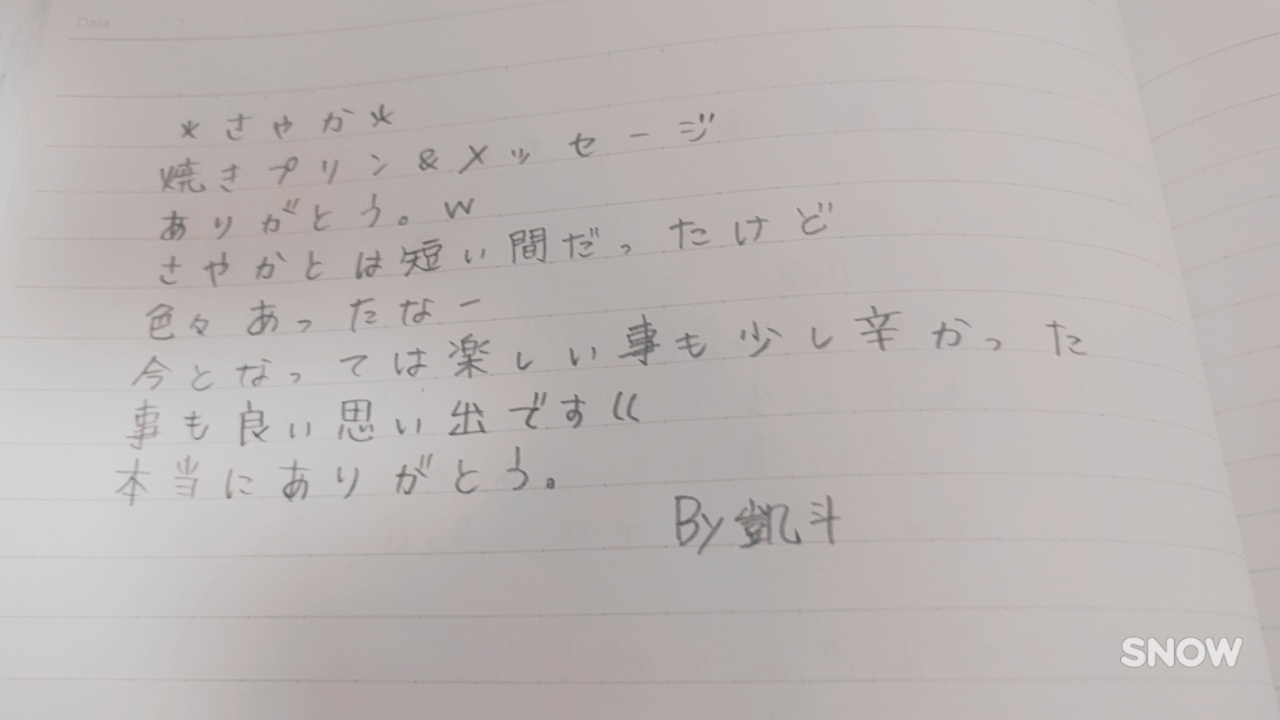 Date
*さやか*
焼きプリン&メッセージ
ありがとう。w
さやかとは短い間だったけど
色々あったなー
今となっては楽しい事も少し辛かった
事も良い思い出です((
本当にありがとう。
By 凱斗
SNOW